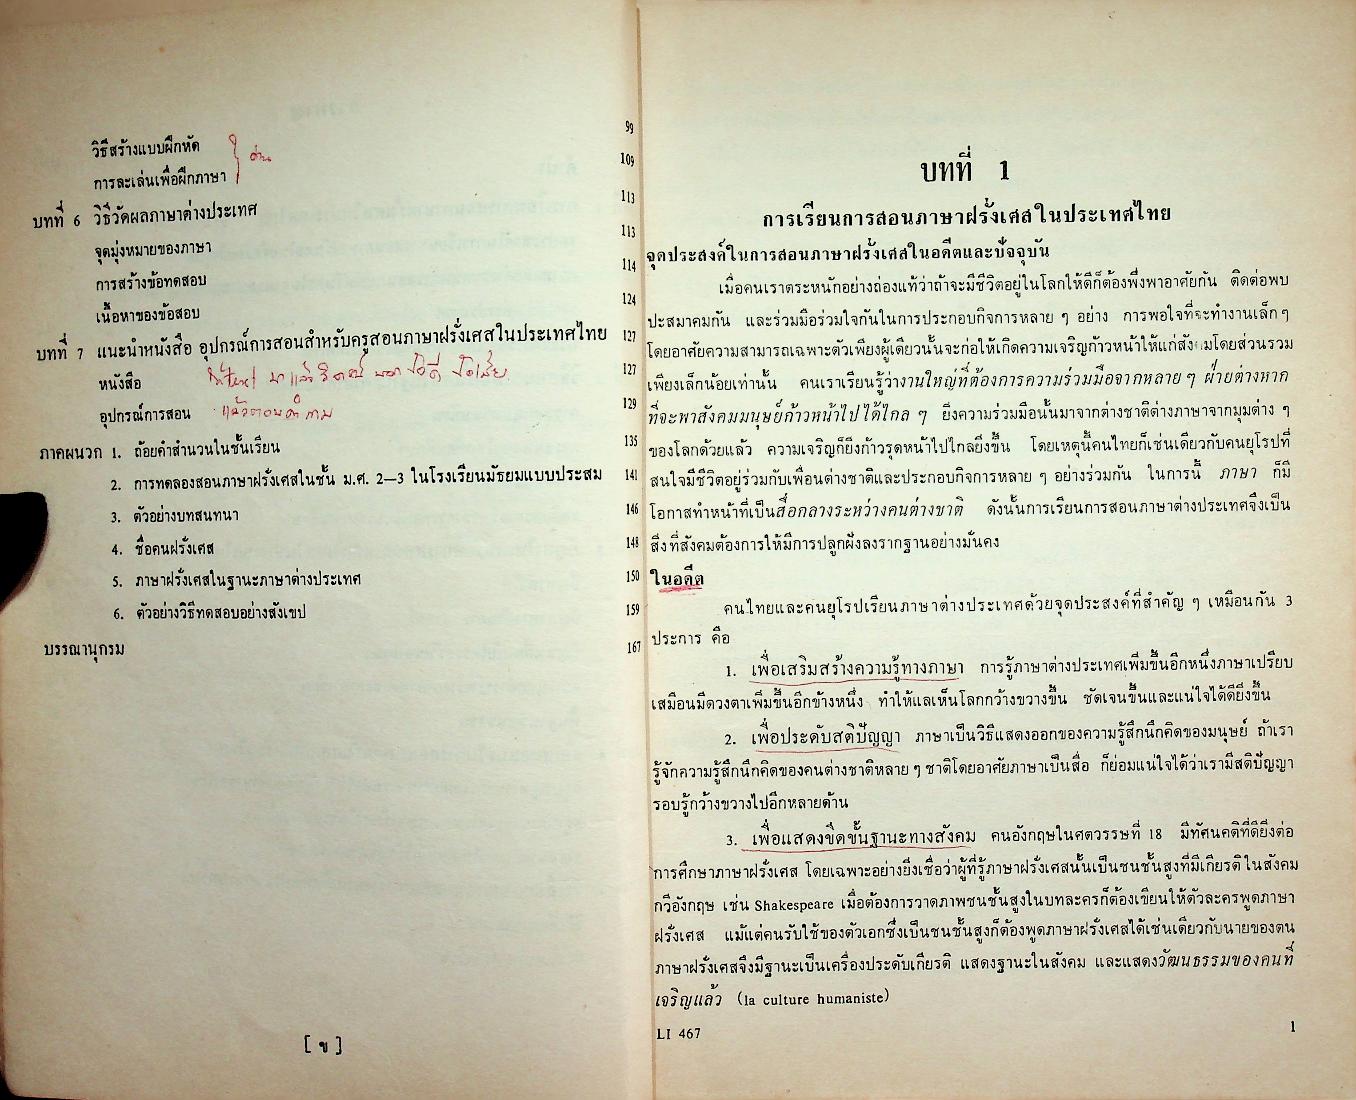 วิธีสร้างแบบฝึกหัด 99
การละเล่นเพื่อฝึกภาษา 109
อ่าน
บทที่ 6 วิธีวัดผลภาษาต่างประเทศ 113
จุดมุ่งหมายของภาษา 113
การสร้างข้อทดสอบ 114
เนื้อหาของข้อสอบ 124
บทที่ 7 แนะนำหนังสือ อุปกรณ์การสอนสำหรับครูสอนภาษาฝรั่งเศสในประเทศไทย 127
หนังสือ 127
อุปกรณ์การสอน 129
แล้วตอบคำถาม
ภาคผนวก 1. ถ้อยคำสำนวนในชั้นเรียน 135
2. การทดลองสอนภาษาฝรั่งเศสในชั้น ม.ศ. 2—3 ในโรงเรียนมัธยมแบบประสม 141
3. ตัวอย่างบทสนทนา 146
4. ชื่อคนฝรั่งเศส 148
5. ภาษาฝรั่งเศสในฐานะภาษาต่างประเทศ 150
6. ตัวอย่างวิธีทดสอบอย่างสังเขป 159
บรรณานุกรม 167
[ ข ]
บทที่ 1
การเรียนการสอนภาษาฝรั่งเศสในประเทศไทย
จุดประสงค์ในการสอนภาษาฝรั่งเศสในอดีตและปัจจุบัน
เมื่อคนเราตระหนักอย่างถ่องแท้ว่าถ้าจะมีชีวิตอยู่ในโลกให้ดีก็ต้องพึ่งพาอาศัยกัน ติดต่อพบ
ปะสมาคมกัน และร่วมมือร่วมใจกันในการประกอบกิจการหลาย ๆ อย่าง การพอใจที่จะทำงานเล็กๆ
โดยอาศัยความสามารถเฉพาะตัวเพียงผู้เดียวนั้นจะก่อให้เกิดความเจริญก้าวหน้าให้แก่สังคมโดยส่วนรวม
เพียงเล็กน้อยเท่านั้น คนเราเรียนรู้ว่างานใหญ่ที่ต้องการความร่วมมือจากหลายๆ ฝ่ายต่างหาก
ที่จะพาสังคมมนุษย์ก้าวหน้าไปได้ไกล ๆ ยิ่งความร่วมมือนั้นมาจากต่างชาติต่างภาษาจากมุมต่าง ๆ
ของโลกด้วยแล้ว ความเจริญก็ยิ่งก้าวรุดหน้าไปไกลยิ่งขึ้น โดยเหตุนี้คนไทยก็เช่นเดียวกับคนยุโรปที่
สนใจมีชีวิตอยู่ร่วมกับเพื่อนต่างชาติและประกอบกิจการหลาย ๆ อย่างร่วมกัน ในการนี้ ภาษา ก็มี
โอกาสทำหน้าที่เป็นสื่อกลางระหว่างคนต่างชาติ ดังนั้นการเรียนการสอนภาษาต่างประเทศจึงเป็น
สิ่งที่สังคมต้องการให้มีการปลูกฝังลงรากฐานอย่างมั่นคง
ในอดีต
คนไทยและคนยุโรปเรียนภาษาต่างประเทศด้วยจุดประสงค์ที่สำคัญ ๆ เหมือนกัน 3
ประการ คือ
1. เพื่อเสริมสร้างความรู้ทางภาษา การรู้ภาษาต่างประเทศเพิ่มขึ้นอีกหนึ่งภาษาเปรียบ
เสมือนมีดวงตาเพิ่มขึ้นอีกข้างหนึ่ง ทำให้แลเห็นโลกกว้างขวางขึ้น ชัดเจนขึ้นและแน่ใจได้ดียิ่งขึ้น
2. เพื่อประดับสติปัญญา ภาษาเป็นวิธีแสดงออกของความรู้สึกนึกคิดของมนุษย์ ถ้าเรา
รู้จักความรู้สึกนึกคิดของคนต่างชาติหลายๆ ชาติโดยอาศัยภาษาเป็นสื่อ ก็ย่อมแน่ใจได้ว่าเรามีสติปัญญา
รอบรู้กว้างขวางไปอีกหลายด้าน
3. เพื่อแสดงขีดขั้นฐานะทางสังคม คนอังกฤษในศตวรรษที่ 18 มีทัศนคติที่ดียิ่งต่อ
การศึกษาภาษาฝรั่งเศส โดยเฉพาะอย่างยิ่งเชื่อว่าผู้ที่รู้ภาษาฝรั่งเศสนั้นเป็นชนชั้นสูงที่มีเกียรติในสังคม
กวีอังกฤษ เช่น Shakespeare เมื่อต้องการวาดภาพชนชั้นสูงในบทละครก็ต้องเขียนให้ตัวละครพูดภาษา
ฝรั่งเศส แม้แต่คนรับใช้ของตัวเอกซึ่งเป็นชนชั้นสูงก็ต้องพูดภาษาฝรั่งเศสได้เช่นเดียวกับนายของตน
ภาษาฝรั่งเศสจึงมีฐานะเป็นเครื่องประดับเกียรติ แสดงฐานะในสังคม และแสดงวัฒนธรรมของคนที่
เจริญแล้ว (la culture humaniste)
LI 467 1